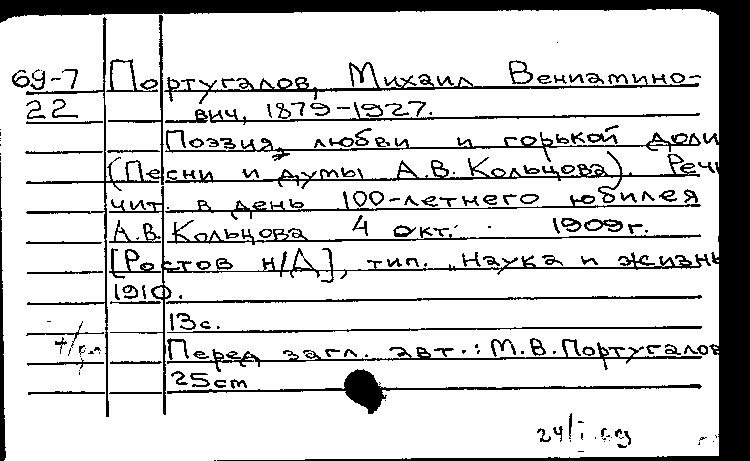 69-7 Португалов, Михаил Вениамино-
22 вич, 1879-1927.
Поэзия любви и горькой доли
(Песни и думы А.В. Кольцова). Речь
чит. в день 100-летнего юбилея
А.В. Кольцова 4 окт. 1909 г.
[Ростов н/Д], тип. „Наука и жизнь
1910.
13с.
Перед загл. авт.: М.В. Португалов
25cm
24/I.69